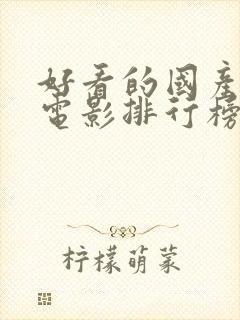 好看的國產
電影排行榜
柠檬萌菜